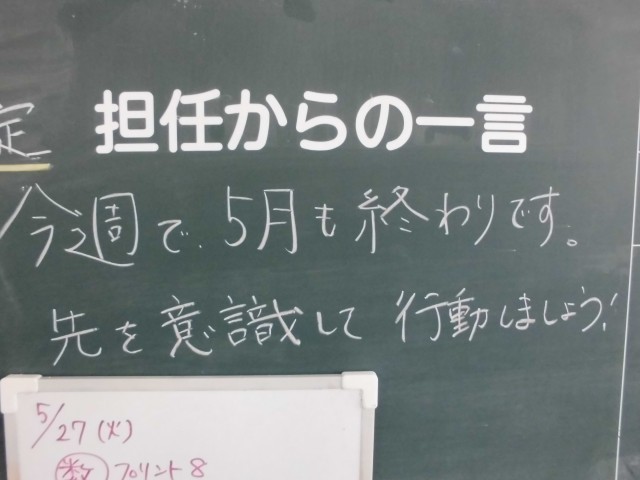 定
担任からの一言
今週で、5月も終わりです。
先を意識して行動しましょう!
5/27(火)
数 プリント8